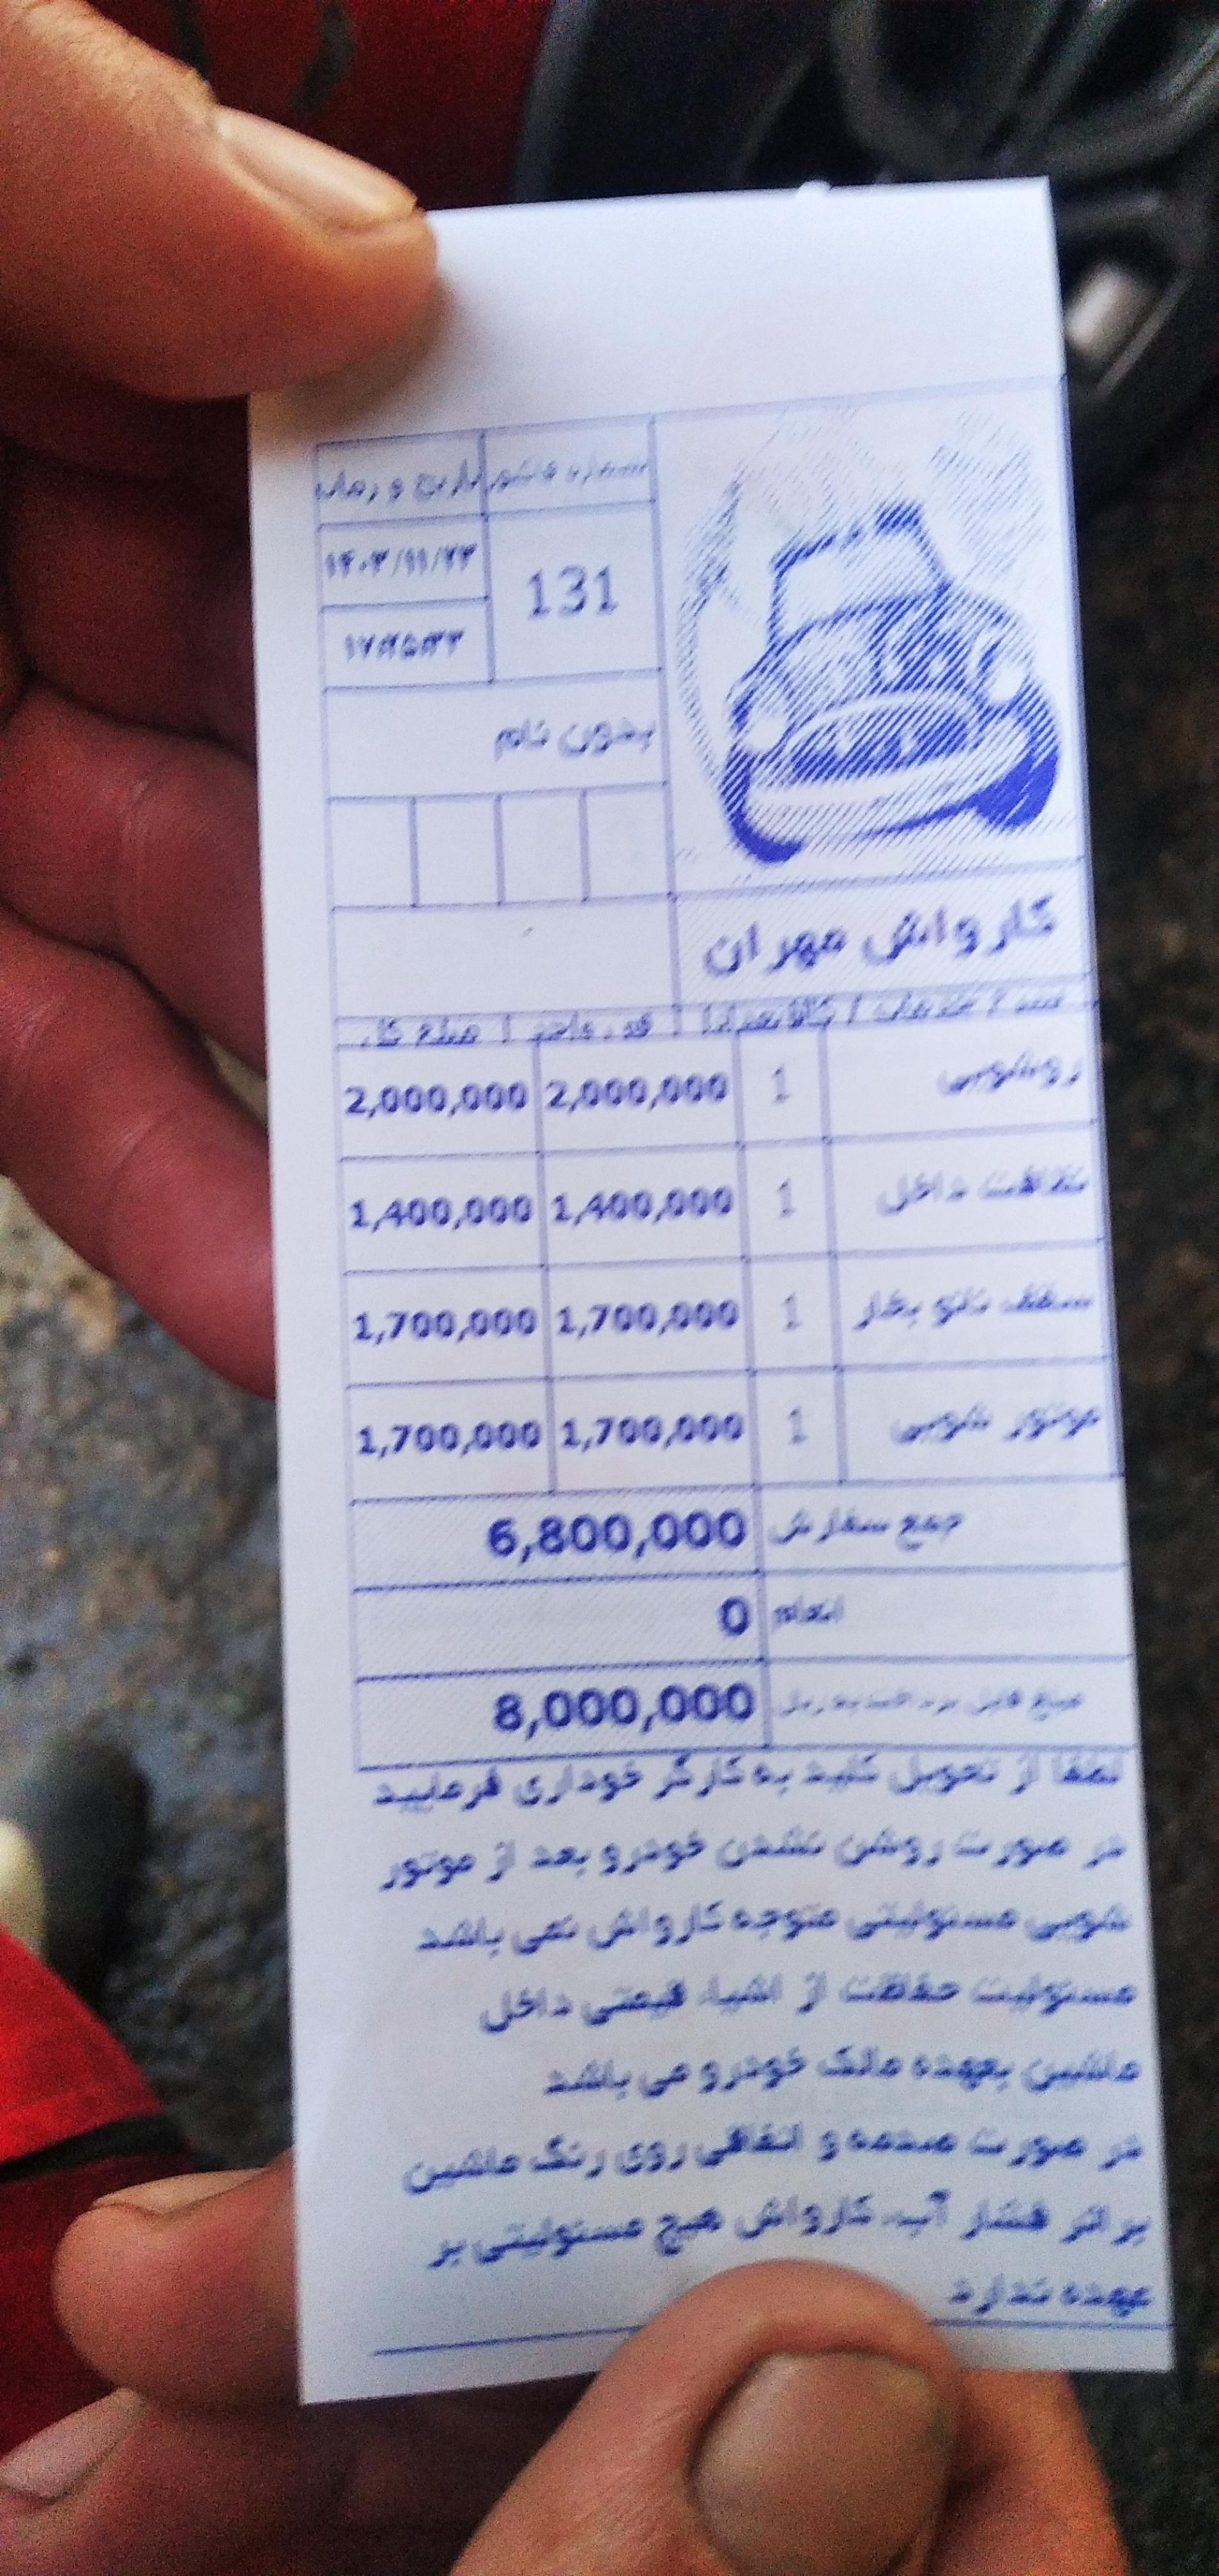 شماره فاکتور تاریخ و زمان
131
۱۴۰۳/۱۱/۲۳
بدون نام
کارواش مهران
روشویی 1 2,000,000 2,000,000
نظافت داخل 1 1,400,000 1,400,000
سقف نانو بخار 1 1,700,000 1,700,000
موتور شویی 1 1,700,000 1,700,000
جمع سفارش 6,800,000
انعام 0
مبلغ قابل پرداخت به ریال 8,000,000
لطفا از تحویل کلید به کارگر خوداری فرمایید
در صورت روشن نشدن خودرو بعد از موتور
شویی مسئولیتی متوجه کارواش نمی باشد
مسئولیت حفاظت از اشیاء قیمتی داخل
ماشین بعهده مالک خودرو می باشد
در صورت صدمه و اتفاقی روی رنگ ماشین
بر اثر فشار آب، کارواش هیچ مسئولیتی بر
عهده ندارد